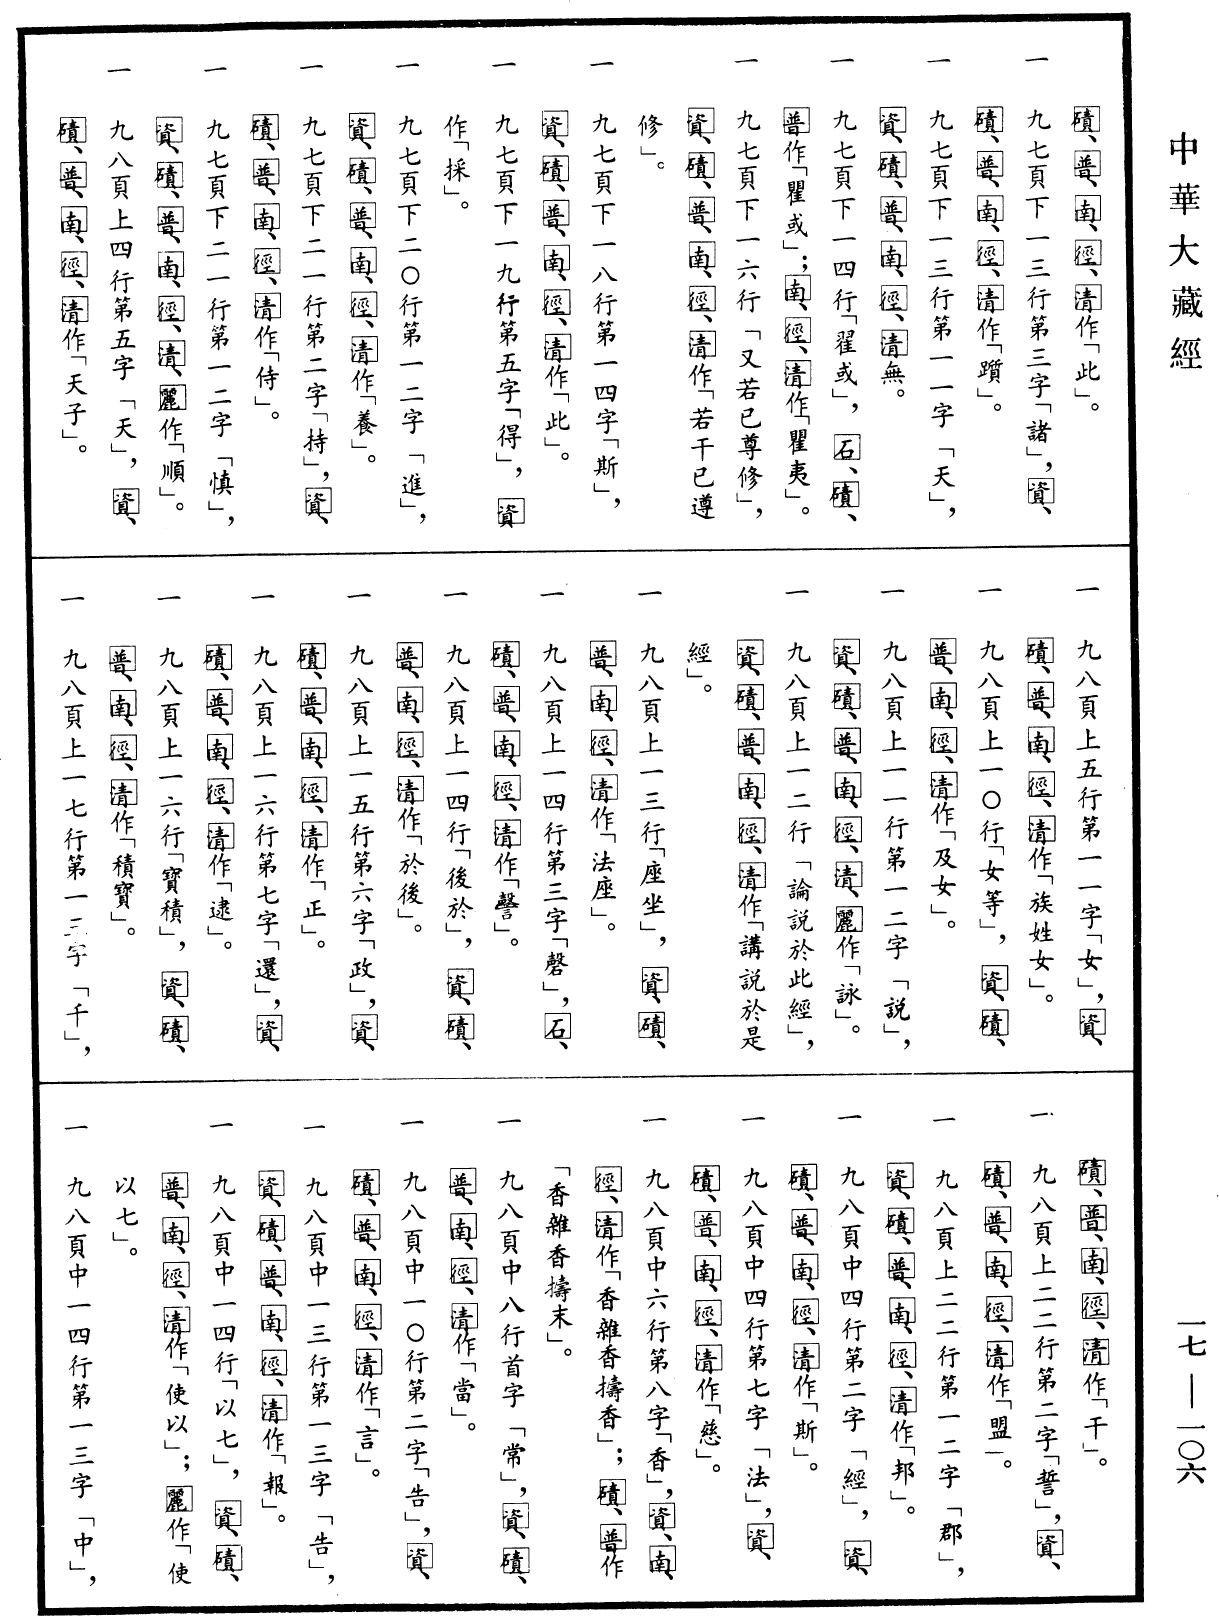 中華大藏經
磧、普、南、徑、清作「此」。
一 九七頁下一三行第三字「諸」，資、
磧、普、南、徑、清作「躓」。
一 九七頁下一三行第一一字「天」，
資、磧、普、南、徑、清無。
一 九七頁下一四行「翟或」，石、磧、
普作「瞿或」；南、徑、清作「瞿夷」。
一 九七頁下一六行「又若已尊修」，
資、磧、普、南、徑、清作「若干已遵
修」。
一 九七頁下一八行第一四字「斯」，
資、磧、普、南、徑、清作「此」。
一 九七頁下一九行第五字「得」，資
作「採」。
一 九七頁下二〇行第一二字「進」，
資、磧、普、南、徑、清作「養」。
一 九七頁下二一行第二字「持」，資、
磧、普、南、徑、清作「侍」。
一 九七頁下二一行第一二字「慎」，
資、磧、普、南、徑、清、麗作「順」。
一 九八頁上四行第五字「天」，資、
磧、普、南、徑、清作「天子」。
一 九八頁上五行第一一字「女」，資、
磧、普、南、徑、清作「族姓女」。
一 九八頁上一〇行「女等」，資、磧、
普、南、徑、清作「及女」。
一 九八頁上一一行第一二字「説」，
資、磧、普、南、徑、清、麗作「詠」。
一 九八頁上一二行「論説於此經」，
資、磧、普、南、徑、清作「講説於是
經」。
一 九八頁上一三行「座坐」，資、磧、
普、南、徑、清作「法座」。
一 九八頁上一四行第三字「磬」，石、
磧、普、南、徑、清作「謦」。
一 九八頁上一四行「後於」，資、磧、
普、南、徑、清作「於後」。
一 九八頁上一五行第六字「政」，資、
磧、普、南、徑、清作「正」。
一 九八頁上一六行第七字「還」，資、
磧、普、南、徑、清作「逮」。
一 九八頁上一六行「寶積」，資、磧、
普、南、徑、清作「積寶」。
一 九八頁上一七行第一三字「千」，
磧、普、南、徑、清作「干」。
一 九八頁上二二行第二字「誓」，資、
磧、普、南、徑、清作「盟」。
一 九八頁上二二行第一二字「郡」，
資、磧、普、南、徑、清作「邦」。
一 九八頁中四行第二字「經」，資、
磧、普、南、徑、清作「斯」。
一 九八頁中四行第七字「法」，資、
磧、普、南、徑、清作「慈」。
一 九八頁中六行第八字「香」，資、南、
徑、清作「香雜香擣香」；磧、普作
「香雜香擣末」。
一 九八頁中八行首字「常」，資、磧、
普、南、徑、清作「當」。
一 九八頁中一〇行第二字「告」，資、
磧、普、南、徑、清作「言」。
一 九八頁中一三行第一三字「告」，
資、磧、普、南、徑、清作「報」。
一 九八頁中一四行「以七」，資、磧、
普、南、徑、清作「使以」；麗作「使
以七」。
一 九八頁中一四行第一三字「中」，
一七—一〇六